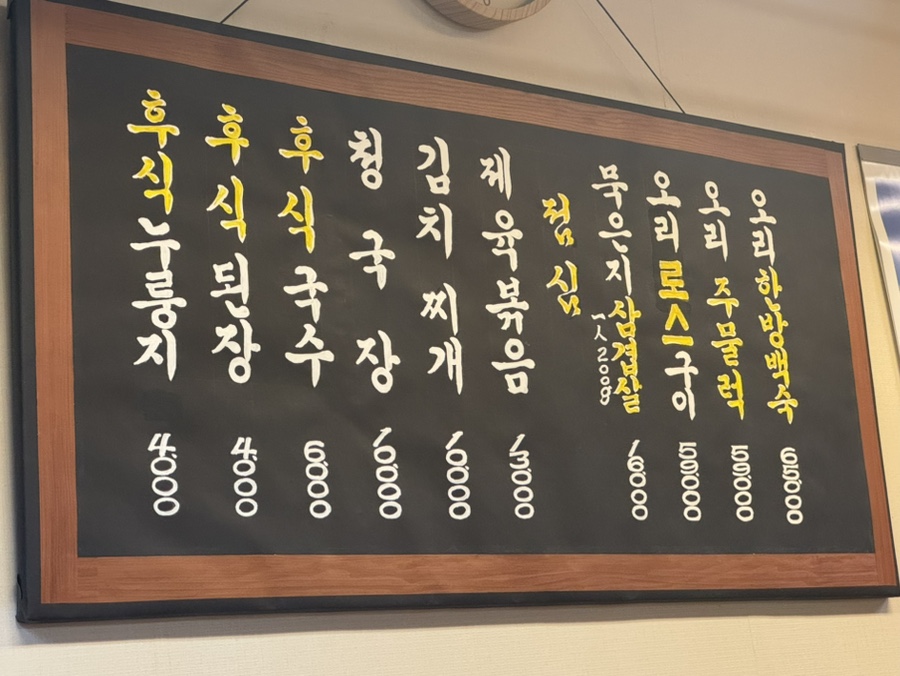 오리한방백숙 65,000
오리주물럭 59,000
오리로스구이 59,000
묵은지삼겹살 1人 200g 16,000
점심
제육볶음 13,000
김치찌개 10,000
청국장 10,000
후식국수 6,000
후식된장 4,000
후식누룽지 4,000